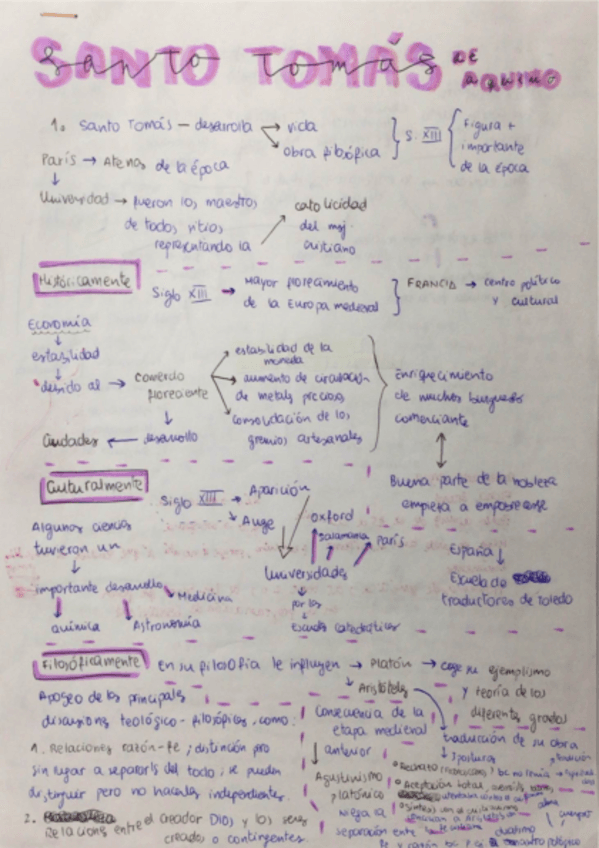 SANTO TOMÁS DE AQUINO
1. Santo Tomás — desarrolla → vida
obra filosófica } S. XIII { Figura + importante de la época
París → Atenas de la época
↓
Universidad → fueron los maestros
de todos sitios
representando la
catolicidad
del msj.
cristiano
Históricamente
Siglo XIII → Mayor florecimiento
de la Europa medieval } FRANCIA → centro político
y cultural
Economía
↓
estabilidad
↓
debido al → comercio
floreciente
estabilidad de la
moneda
aumento de circulación
de metales preciosos
consolidación de los
gremios artesanales
Enriquecimiento
de muchos burgueses
comerciante
Ciudades ← desarrollo
Buena parte de la nobleza
empieza a empobrecerse
Culturalmente
Siglo XIII → Aparición
↘ Auge
Algunas ciencias
tuvieron un
importante desarrollo
Medicina
química
Astronomía
Oxford
Salamanca
París
Universidades
↓ por las
Escuelas catedráticas
España ↓
Escuela de
traductores de Toledo
Filosóficamente
En su filosofía le influyen → Platón → coge su ejemplismo
y teoría de los
diferentes grados
↘ Aristóteles
Apogeo de las principales
discusiones teológico-filosóficas, como:
1. Relaciones razón-fe; distinción pro
sin llegar a separarls del todo; se pueden
distinguir pero no hacerlas independientes.
2. Relacions entre el creador Dios y los seres
creados o contingentes
Consecuencia de la
etapa medieval
anterior
↓
Agustinismo
platónico
niega la
separación entre
fe y razón
traducción de su obra
3 posturas
Aceptación total
dualismo